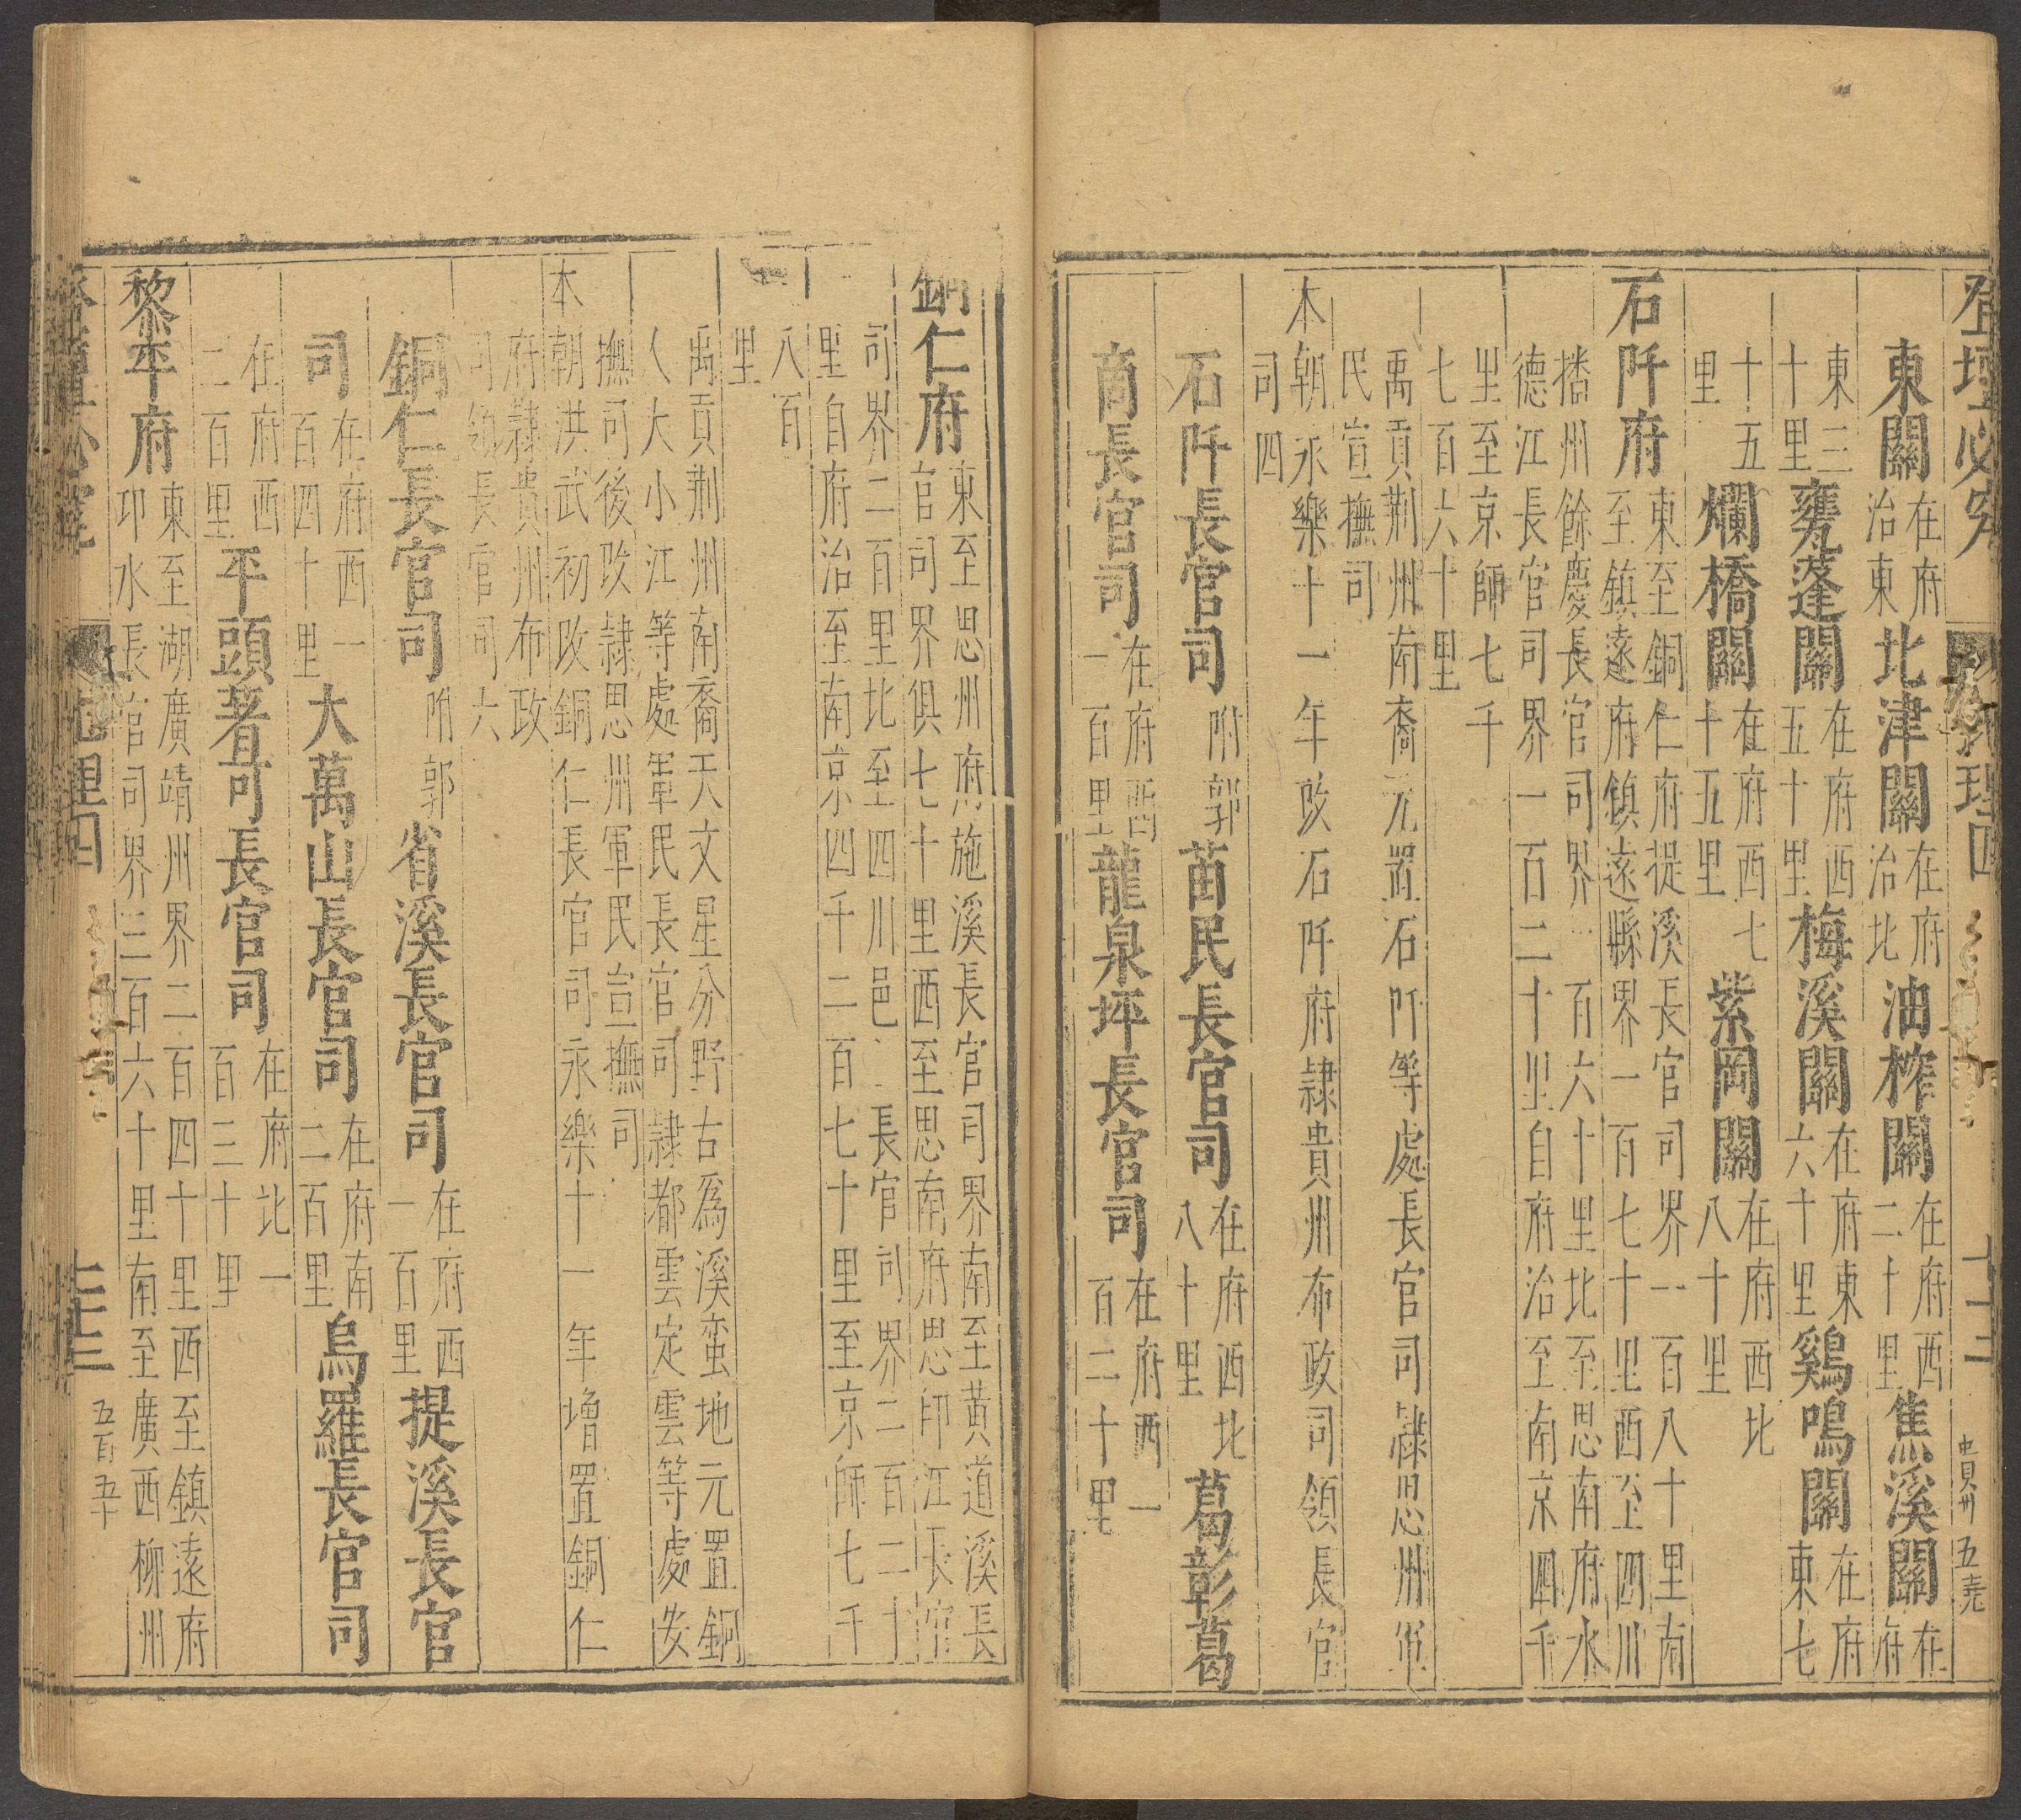 登壇必究 地理四 十三 貴州 五堯
東關在府治東北津關在府治北油榨關在府西二十里焦溪關在府
東三十里甕蓬關在府西五十里梅溪關在府東六十里鷄鳴關在府東七
十五里爛橋關在府西七十五里紫岡關在府西北八十里
石阡府東至銅仁府提溪長官司界一百八十里南至鎮遠府鎮遠縣界一百七十里西至四川
播州餘慶長官司界一百六十里北至思南府水德江長官司界一百二十里自府治至南京四千
里至京師七千七百六十里
禹貢荆州南裔元置石阡等處長官司隷思州軍
民宣撫司
本朝永樂十一年改石阡府隷貴州布政司領長官
司四
石阡長官司附郭苗民長官司在府西北八十里葛彰葛
商長官司在府西一百里龍泉坪長官司在府西一百二十里
銅仁府東至思州府施溪長官司界南至黃道溪長官司界俱七十里西至思南府思印江長官
司界二百里北至四川邑長官司界二百二十里自府治至南京四千二百七十里至京師七千
八百里
禹貢荆州南裔天文星分野古爲溪蛮地元置銅
人大小江等處軍民長官司隷都雲定雲等處安
撫司後改隷思州軍民宣撫司
本朝洪武初改銅仁長官司永樂十一年增置銅仁
府隷貴州布政司領長官司六
銅仁長官司附郭省溪長官司在府西一百里提溪長官
司在府西一百四十里大萬山長官司在府南二百里烏羅長官司
在府西二百里平頭著可長官司在府北一百三十里
黎平府東至湖廣靖州界二百四十里西至鎮遠府卭水長官司界三百六十里南至廣西柳州
地里四 十三 五百五十